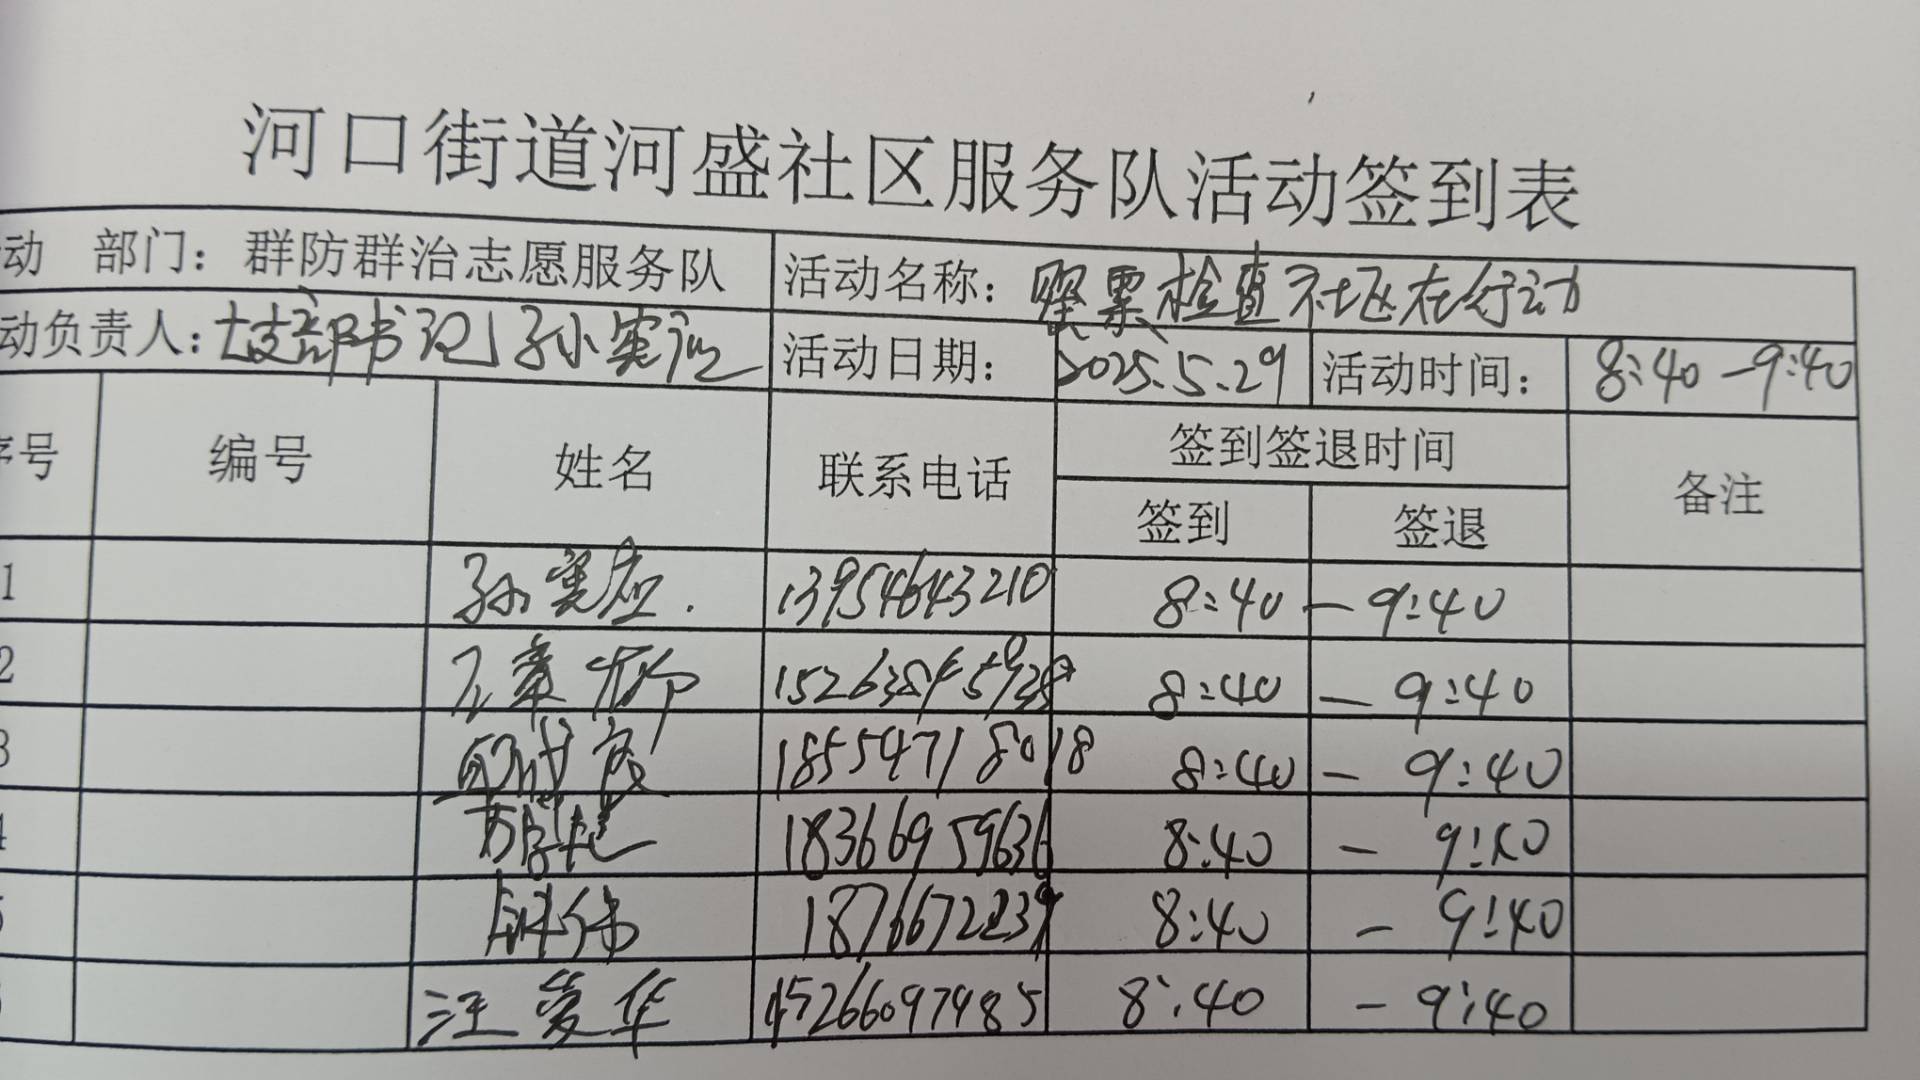 河口街道河盛社区服务队活动签到表
动 部门：群防群治志愿服务队 活动名称： 检查 社区在行动
动负责人： 支部书记 孙 活动日期： 2025.5.29 活动时间： 8:40-9:40
序号 编号 姓名 联系电话 签到签退时间 备注
签到 签退
1 孙 13954643210 8:40 - 9:40
2 8:40 - 9:40
3 18554718018 8:40 - 9:40
4 18366959636 8:40 - 9:40
5 伟 18766722339 8:40 - 9:40
汪爱华 15266097985 8:40 - 9:40